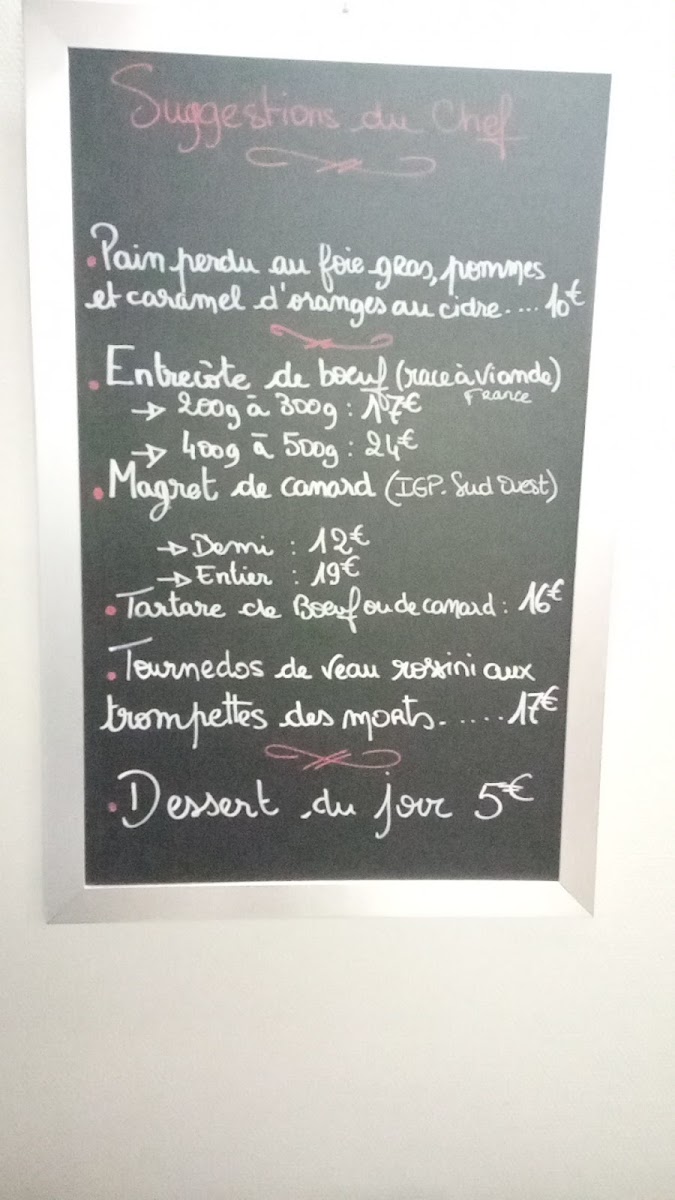 Suggestions du Chef
• Pain perdu au foie gras, pommes
et caramel d'oranges au cidre.... 10€
• Entrecôte de boeuf (race à viande)
France
→ 200g à 300g : 17€
→ 400g à 500g : 24€
• Magret de canard (IGP. Sud Ouest)
→ Demi : 12€
→ Entier : 19€
• Tartare de Boeuf ou de canard : 16€
• Tournedos de veau rossini aux
trompettes des morts...... 17€
• Dessert du jour 5€